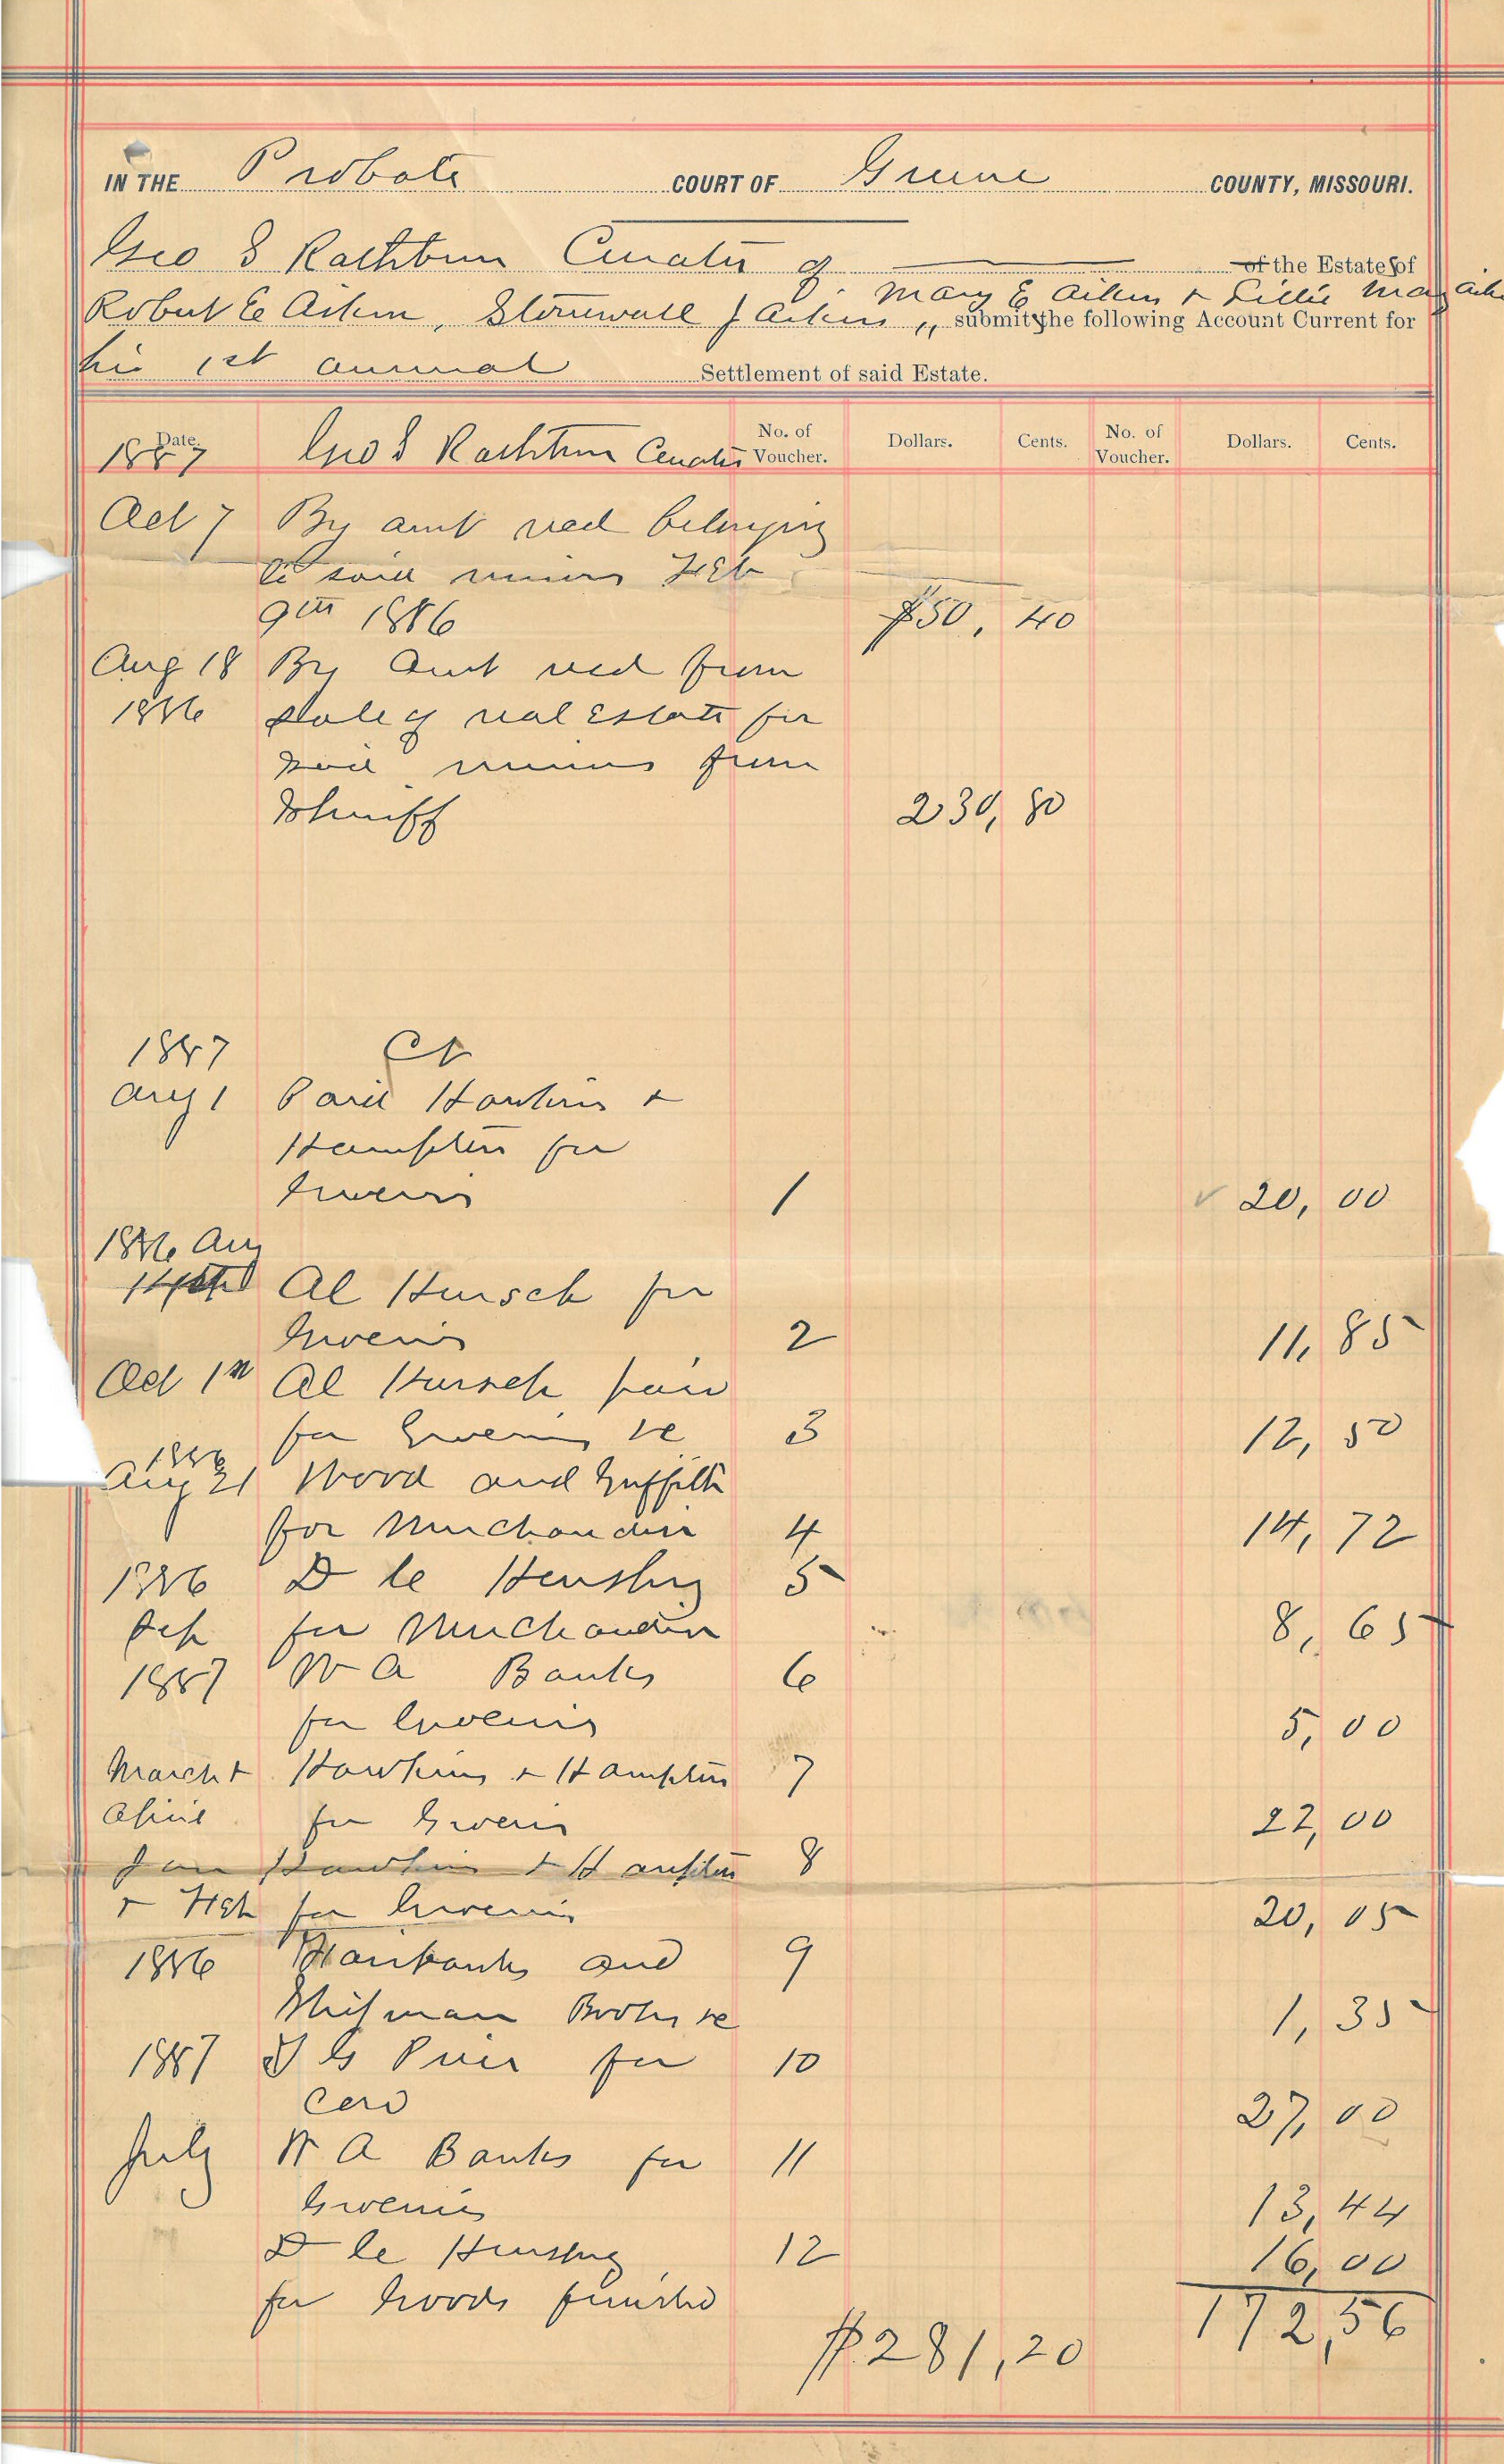 IN THE Probate COURT OF Greene COUNTY, MISSOURI.
Geo S Rathbun Curator of of the Estates of
Robert E Aiken, Stonewall J Aiken ,, Mary E Aiken + Lillie May Aiken
submits the following Account Current for
his 1st annual Settlement of said Estate.
Date. No. of Voucher. Dollars. Cents. No. of Voucher. Dollars. Cents.
1887 Geo S Rathbun Curator
Oct 7 By amt recd belonging
to said minors Feb
9th 1886 $50, 40
Aug 18 By Amt recd from
1886 sale of real Estate for
said minors from
Sheriff 230, 80
1887 Cr
Aug 1 Paid Hawkins +
Hampton for
Groceries 1 20, 00
1886 Aug
14th Al Hursch for
Groceries 2 11, 85
Oct 1st Al Hursch paid
for Groceries &c 3 12, 50
1886
Aug 21 Wood and Griffith
for Merchandise 4 14, 72
1886 D C Hensley 5
Sep for Merchandise 8, 65
1887 W A Banks 6
for Groceries 5, 00
March + Hawkins + Hampton 7
Aprie for Groceries 22, 00
Jan Hawkins + Hampton 8
+ Feb for Groceries 20, 05
1886 Fairbanks and 9
Shipman Books &c 1, 35
1887 G Price for 10
27, 00
July W A Banks for 11
Groceries 13, 44
D C Hensley 12 16, 00
for Goods funishd
172, 56
$281, 20